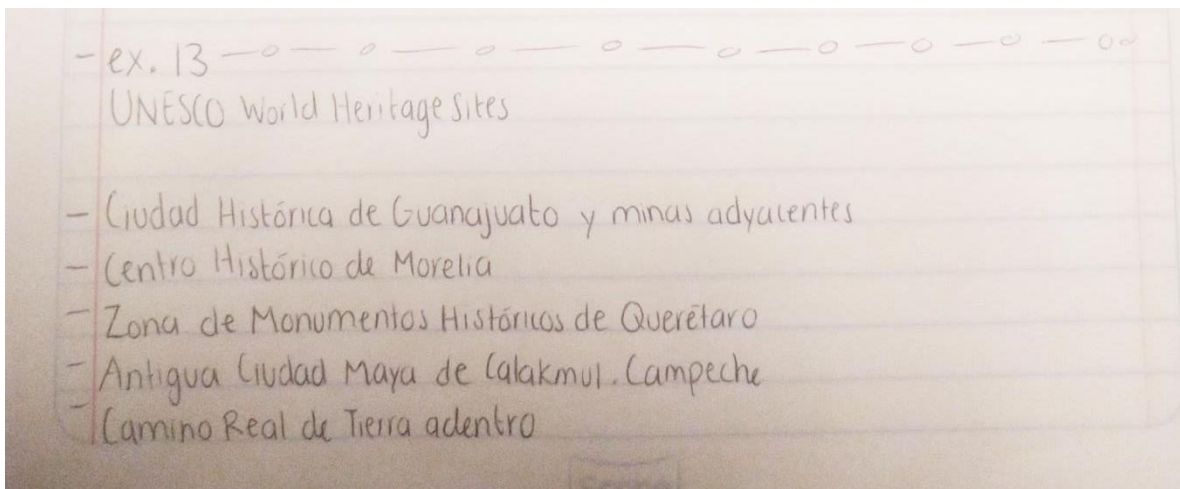 - ex. 13
UNESCO World Heritage Sites
- Ciudad Histórica de Guanajuato y minas adyacentes
- Centro Histórico de Morelia
- Zona de Monumentos Históricos de Querétaro
- Antigua Ciudad Maya de Calakmul. Campeche
- Camino Real de Tierra adentro